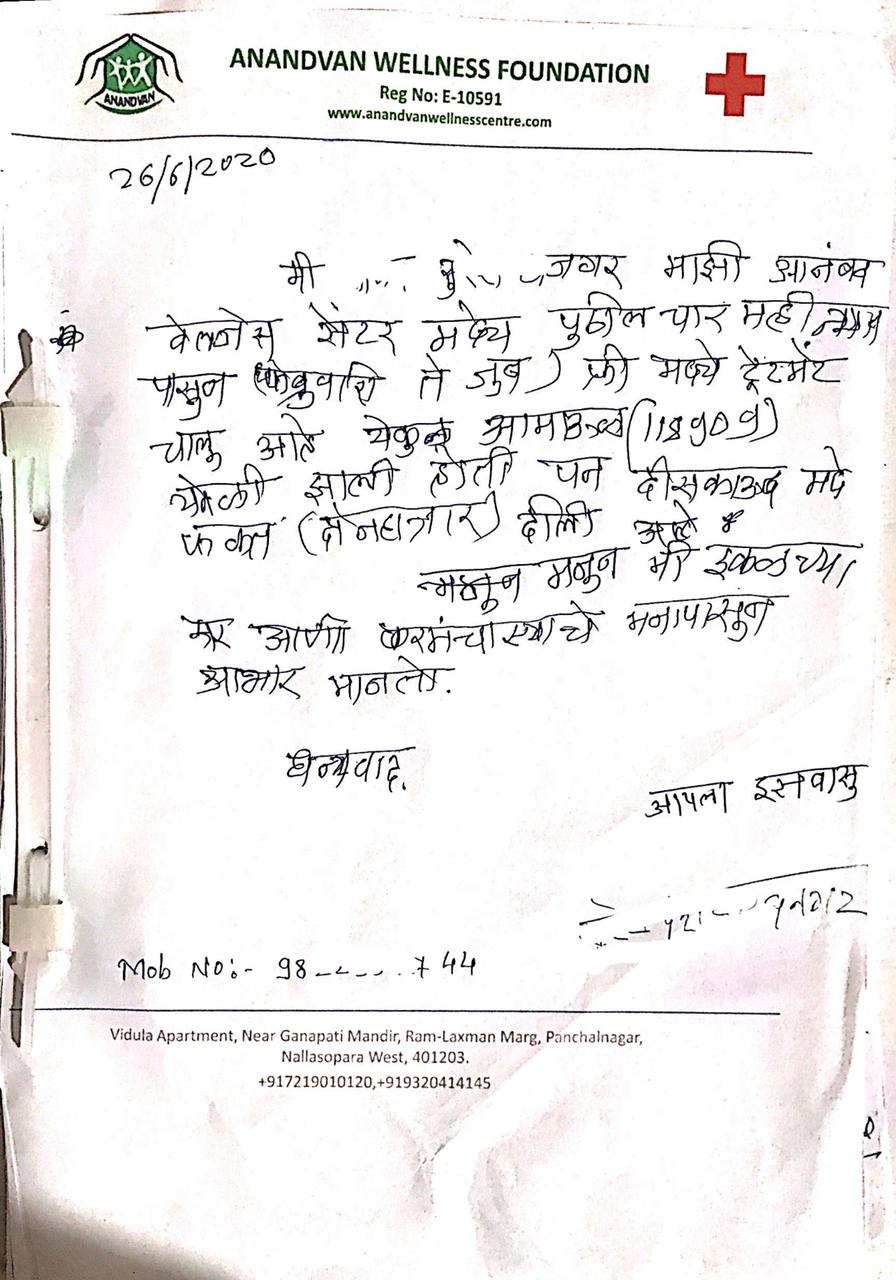 ANANDVAN
ANANDVAN WELLNESS FOUNDATION
Reg No: E-10591
www.anandvanwellnesscentre.com
26/6/2020
मी जगर माझी आनंबव
वेलनेस सेंटर मध्ये पुढील चार महीन्यास
पासुन (फेब्रुवारि ते जुन) फ्री मध्ये ट्रेटमेंट
चालु आहे येकुन आमाऊन्ट (118909)
येवळी झाली होती पन दीसकाऊट मदे
फक्त (दोनहाजार) दीली आहे
म्हनून मनुन मी इकळच्या
सर आणी करमंचाऱ्याचे मनापासुन
आभार मानतो.
धन्यवाद.
आपला इसवासु
Mob No:- 98 744
Vidula Apartment, Near Ganapati Mandir, Ram-Laxman Marg, Panchalnagar,
Nallasopara West, 401203.
+917219010120,+919320414145